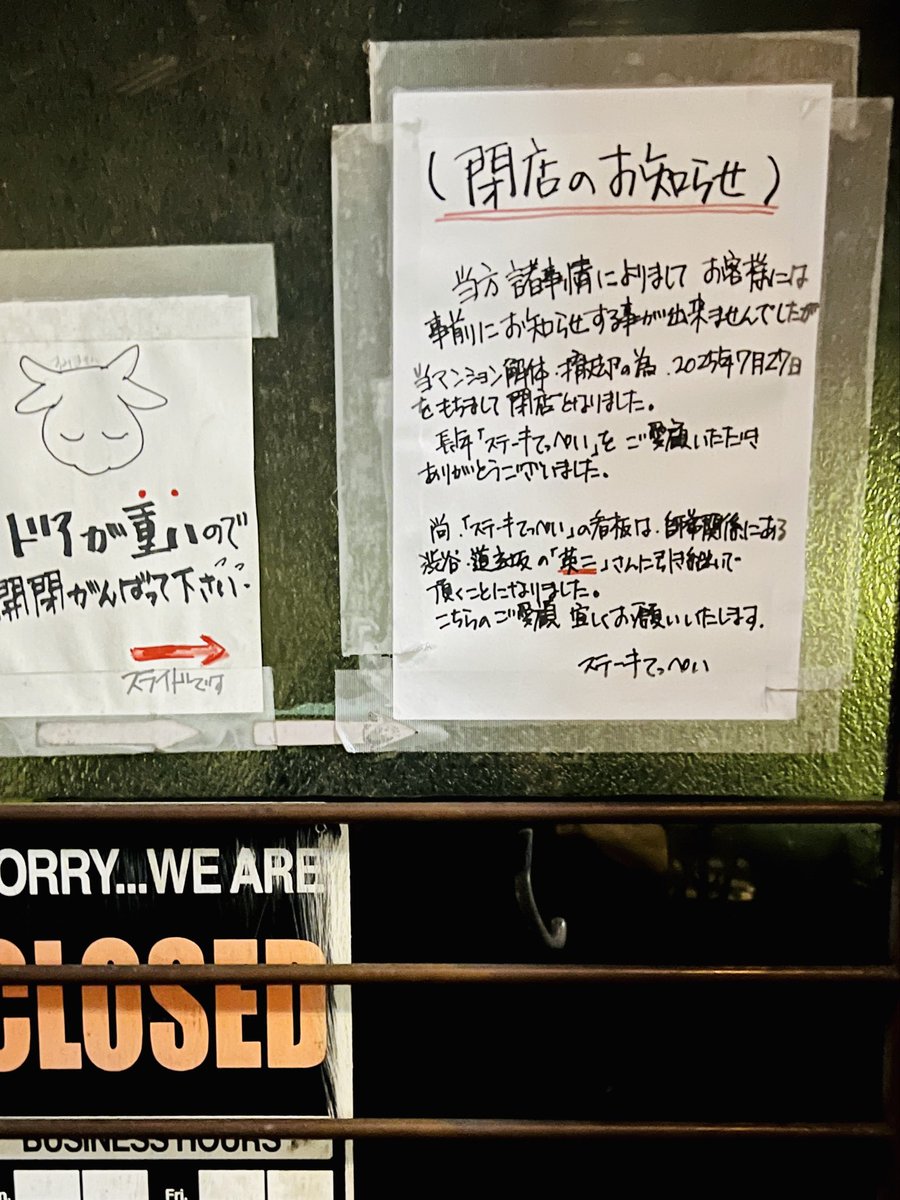 (閉店のお知らせ)
当方諸事情によりまして お客様には
事前にお知らせする事が出来ませんでしたが
当マンション解体・撤却の為、2025年7月27日
をもちまして閉店となりました。
長年「ステーキてっぺい」を ご愛顧いただき
ありがとうございました。
尚、「ステーキてっぺい」の看板は、師弟関係にある
渋谷・道玄坂の「英二」さんに引き継いで
頂くことになりました。
こちらのご愛顧 宜しくお願いいたします。
ステーキてっぺい
ドアが重いので
開閉がんばって下さい
スライドです
ORRY...WE ARE
CLOSED
BUSINESS HOURS
Fri.